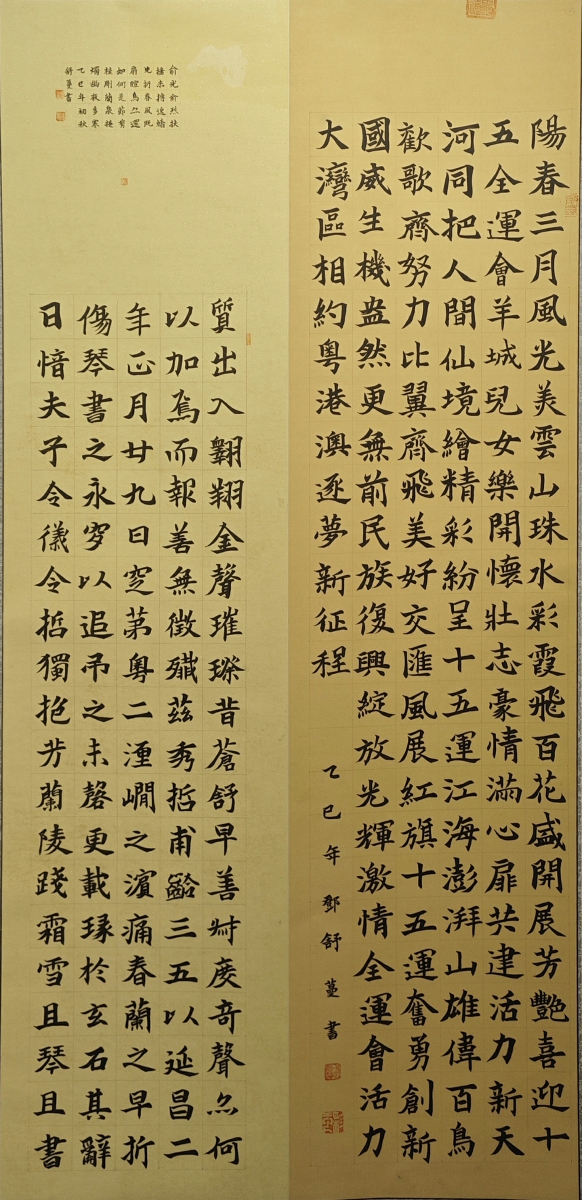 陽春三月風光美雲山珠水彩霞飛百花盛開展芳艷喜迎十
五全運會羊城兒女樂開懷壯志豪情滿心扉共建活力新天
河同把人間仙境繪精彩紛呈十五運江海澎湃山雄偉百鳥
歡歌齊努力比翼齊飛美好交匯風展紅旗十五運奮勇創新
國威生機盎然更無前民族復興綻放光輝激情全運會活力
大灣區相約粵港澳逐夢新征程
乙巳年鄧舒蔓書
質出入翱翔金聲璀璨昔蒼舒早善叔度奇聲亦何
以加焉而報善無徵殲茲秀哲甫齡三五以延昌二
年正月廿九日窆苐粵二湮之濵痛春蘭之早折
傷琴書之永穸以追弔之未罄更載琭於玄石其辭
日愔夫子令儀令哲獨抱芳蘭陵踐霜雪且琴且書
俞光俞烈扶
春風既
扇暄鳥亦還
如何是節
乙巳年初秋
舒蔓書